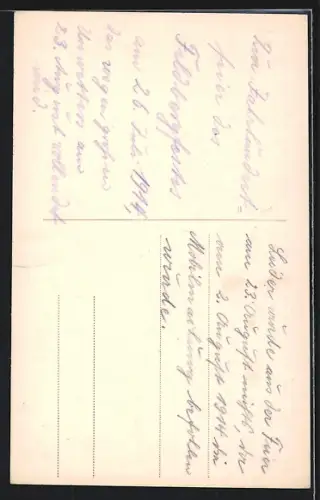 Zur Jahrhundert-
feier des
Feldbergfestes
am 26. Juli 1914,
das wegen großen
Unwetters am
23. Aug. erst vollendet
wird.
Leider wurde aus der Feier
am 23. August nichts, da
am 2. August 1914 die
Mobilmachung befohlen
wurde.